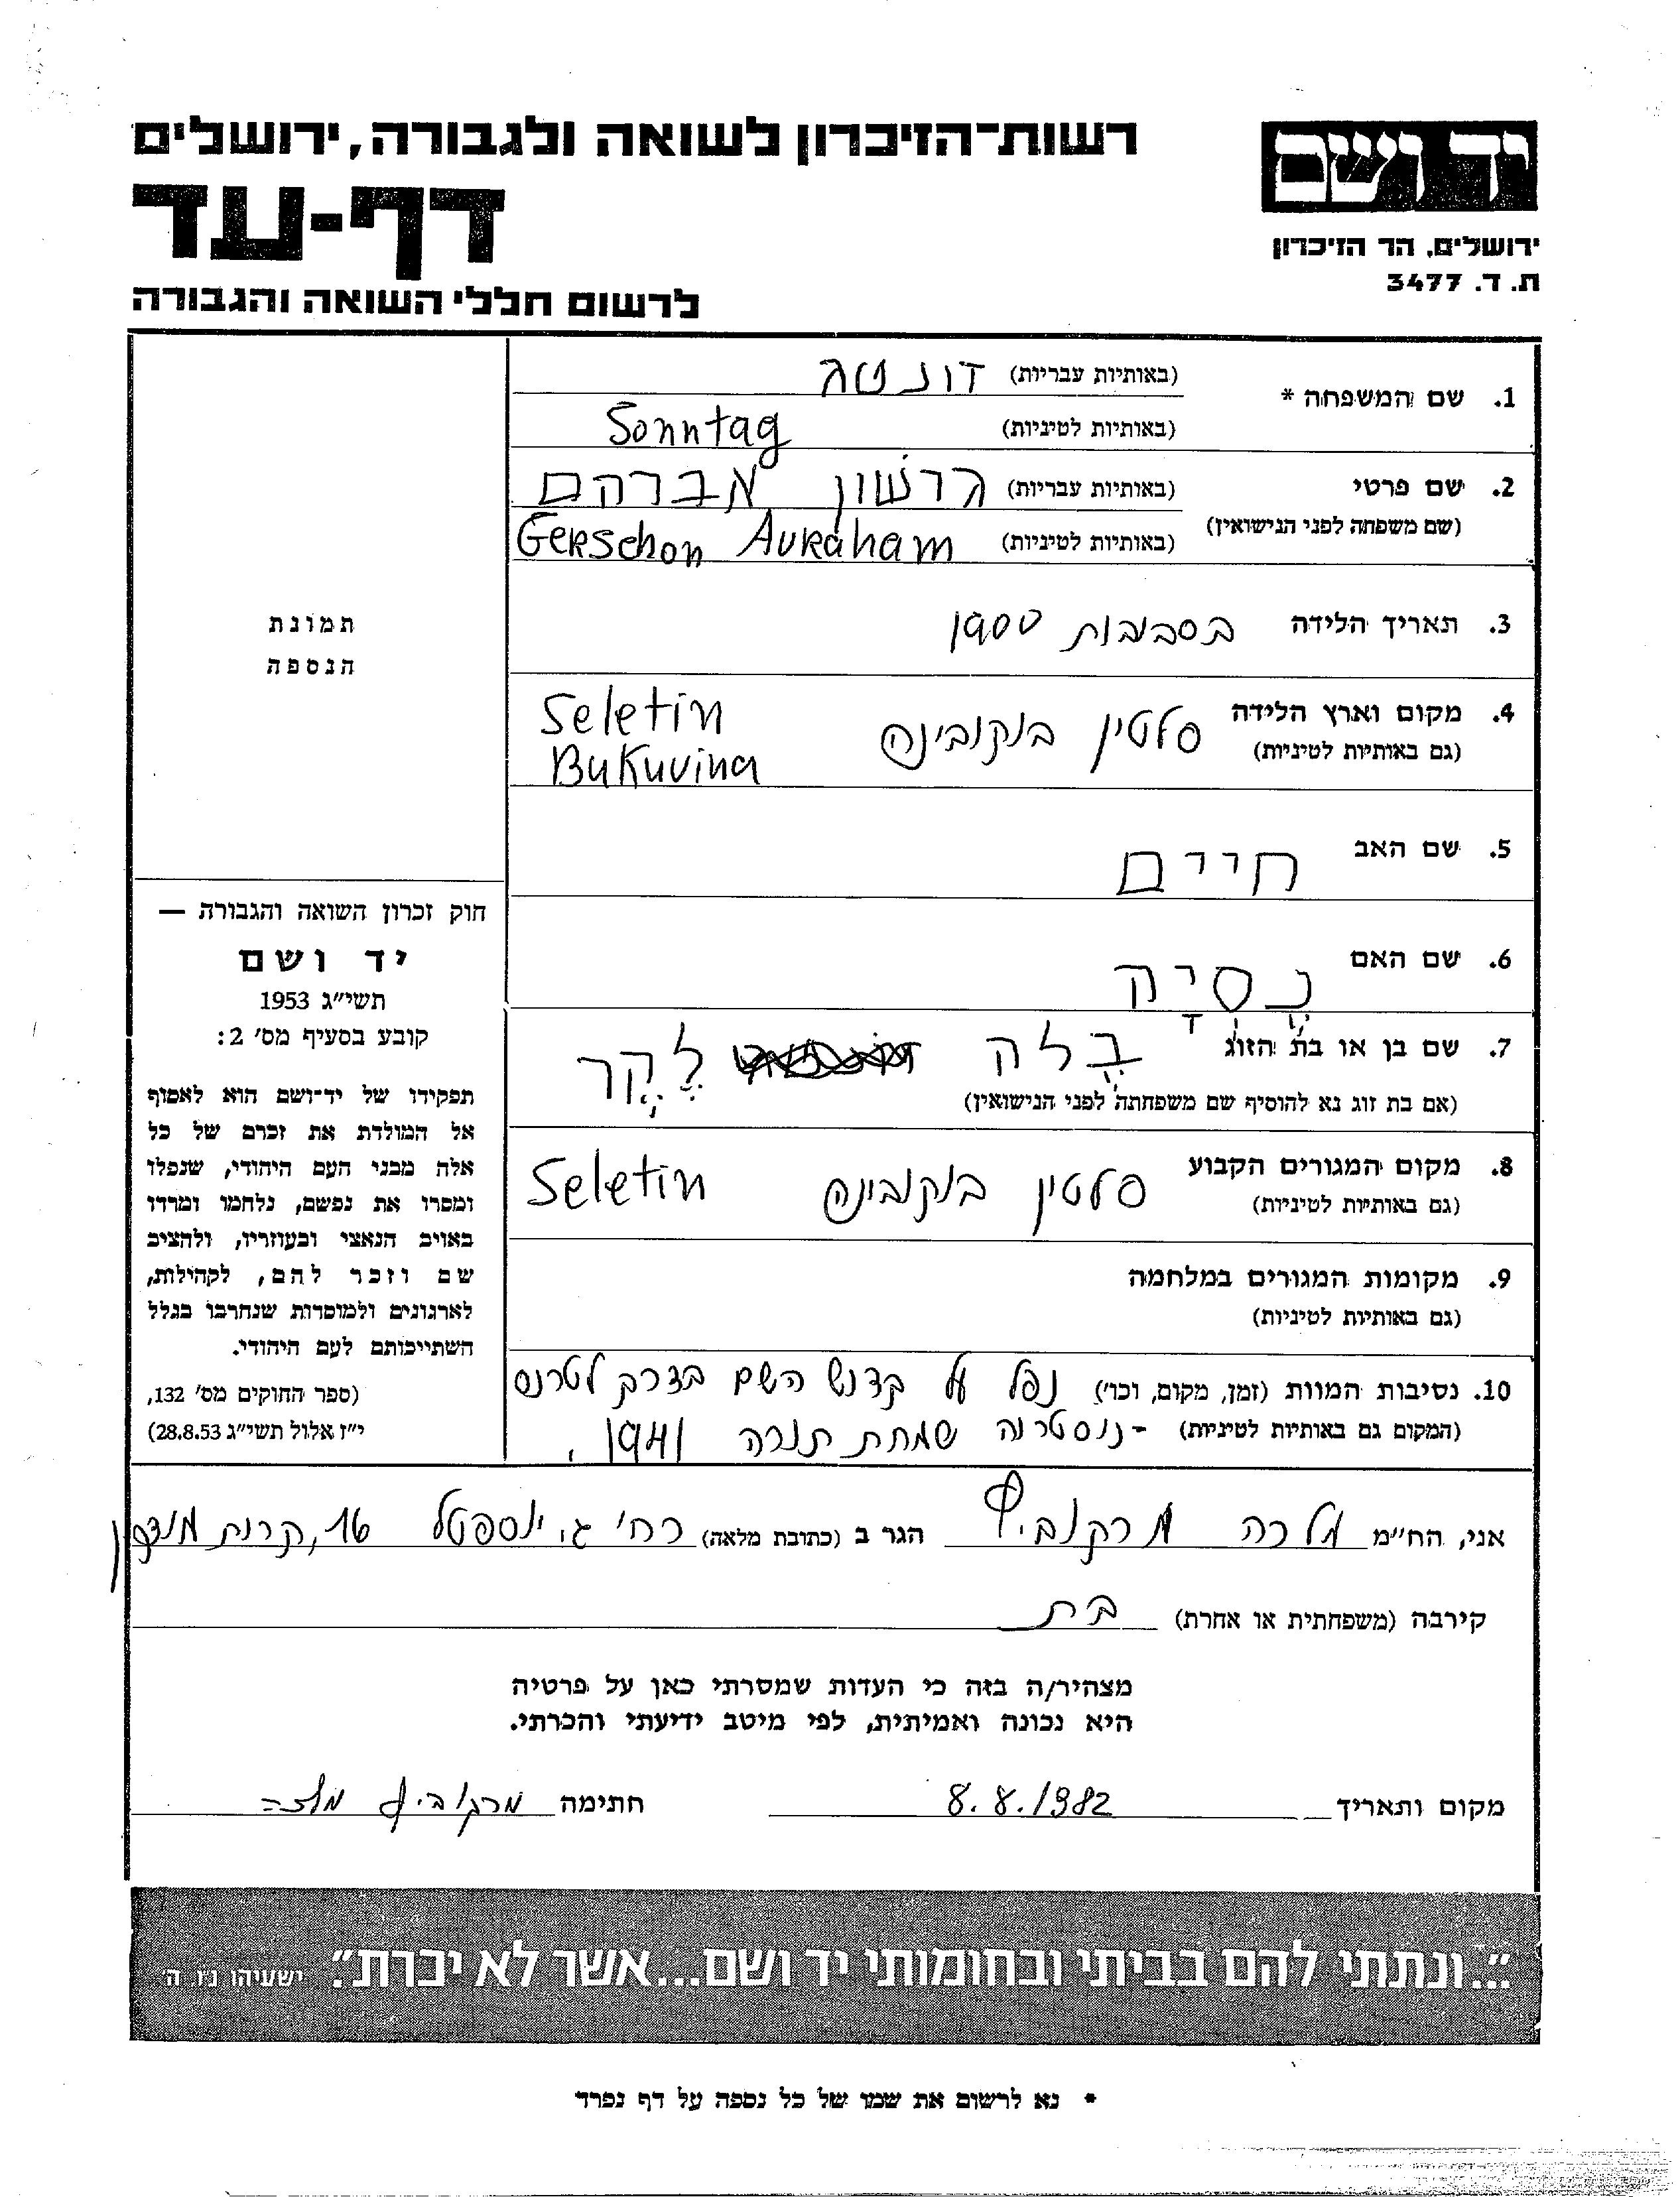 רשות־הזיכרון לשואה ולגבורה, ירושלים
דף-עד
לרשום חללי השואה והגבורה
יד ושם
ירושלים, הר הזיכרון
ת. ד. 3477
1. שם המשפחה * (באותיות עבריות) זונטג
(באותיות לטיניות) Sonntag
2. שם פרטי (באותיות עבריות) גרשון אברהם
(שם משפחה לפני הנישואין) (באותיות לטיניות) Gerschon Avraham
3. תאריך הלידה בסביבות 1900
4. מקום וארץ הלידה סלטין בוקובינה Seletin
(גם באותיות לטיניות) Bukuvina
5. שם האב חיים
6. שם האם נֶסְיַה
7. שם בן או בת הזוג בֶּלה לֶקֶר
(אם בת זוג נא להוסיף שם משפחתה לפני הנישואין)
8. מקום המגורים הקבוע סלטין בוקובינה Seletin
(גם באותיות לטיניות)
9. מקומות המגורים במלחמה
(גם באותיות לטיניות)
10. נסיבות המוות (זמן, מקום, וכו') נפל על קדוש השם בדרך לטרנס
(המקום גם באותיות לטיניות) -נוסטריה שמחת תורה 1941.
תמונת
הנספה
חוק זכרון השואה והגבורה —
יד ושם
תשי״ג 1953
קובע בסעיף מס׳ 2:
תפקידו של יד־ושם הוא לאסוף
אל המולדת את זכרם של כל
אלה מבני העם היהודי, שנפלו
ומסרו את נפשם, נלחמו ומרדו
באויב הנאצי ובעוזריו, ולהציב
שם וזכר להם, לקהילות,
לארגונים ולמוסדות שנחרבו בגלל
השתייכותם לעם היהודי.
(ספר החוקים מס׳ 132,
י״ז אלול תשי״ג 28.8.53)
אני, הח״מ מלכה מרקוביץ הגר ב (כתובת מלאה) רח׳ ג׳ 16, קרית
קירבה (משפחתית או אחרת) בת
מצהיר/ה בזה כי העדות שמסרתי כאן על פרטיה
היא נכונה ואמיתית, לפי מיטב ידיעתי והכרתי.
מקום ותאריך 8.8.1982 חתימה מרקוביץ מלכה
"...ונתתי להם בביתי ובחומותי יד ושם...אשר לא יכרת". ישעיהו נ״ו, ה׳
* נא לרשום את שמו של כל נספה על דף נפרד